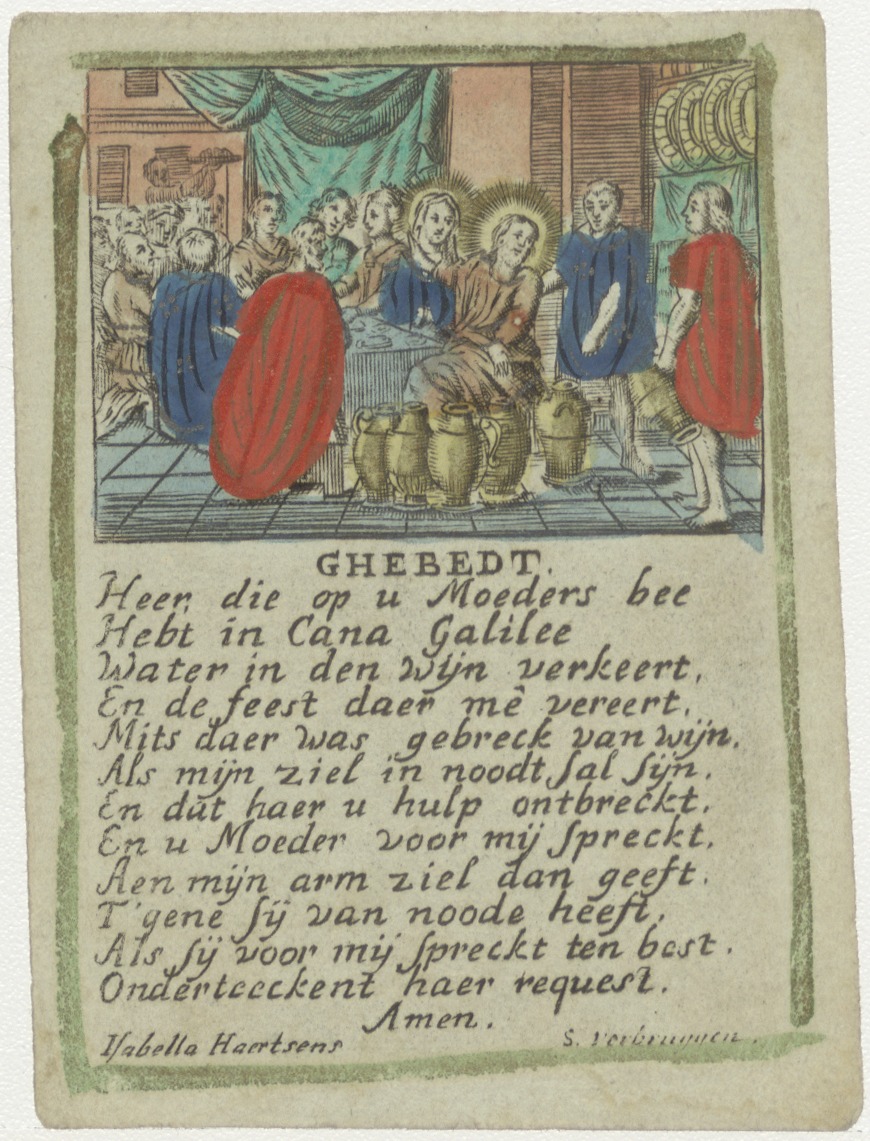 GHEBEDT.
Heer, die op u Moeders bee
Hebt in Cana Galilee
Water in den wijn verkeert,
En de feest daer mê vereert,
Mits daer was gebreck van wijn.
Als mijn ziel in noodt sal sijn.
En dat haer u hulp ontbreckt.
En u Moeder voor mij spreckt.
Aen mijn arm ziel dan geeft.
T'gene sij van noode heeft,
Als sij voor mij spreckt ten best.
Onderteeckent haer request.
Amen.
Isabella Haertsens
S. Verbruggen.